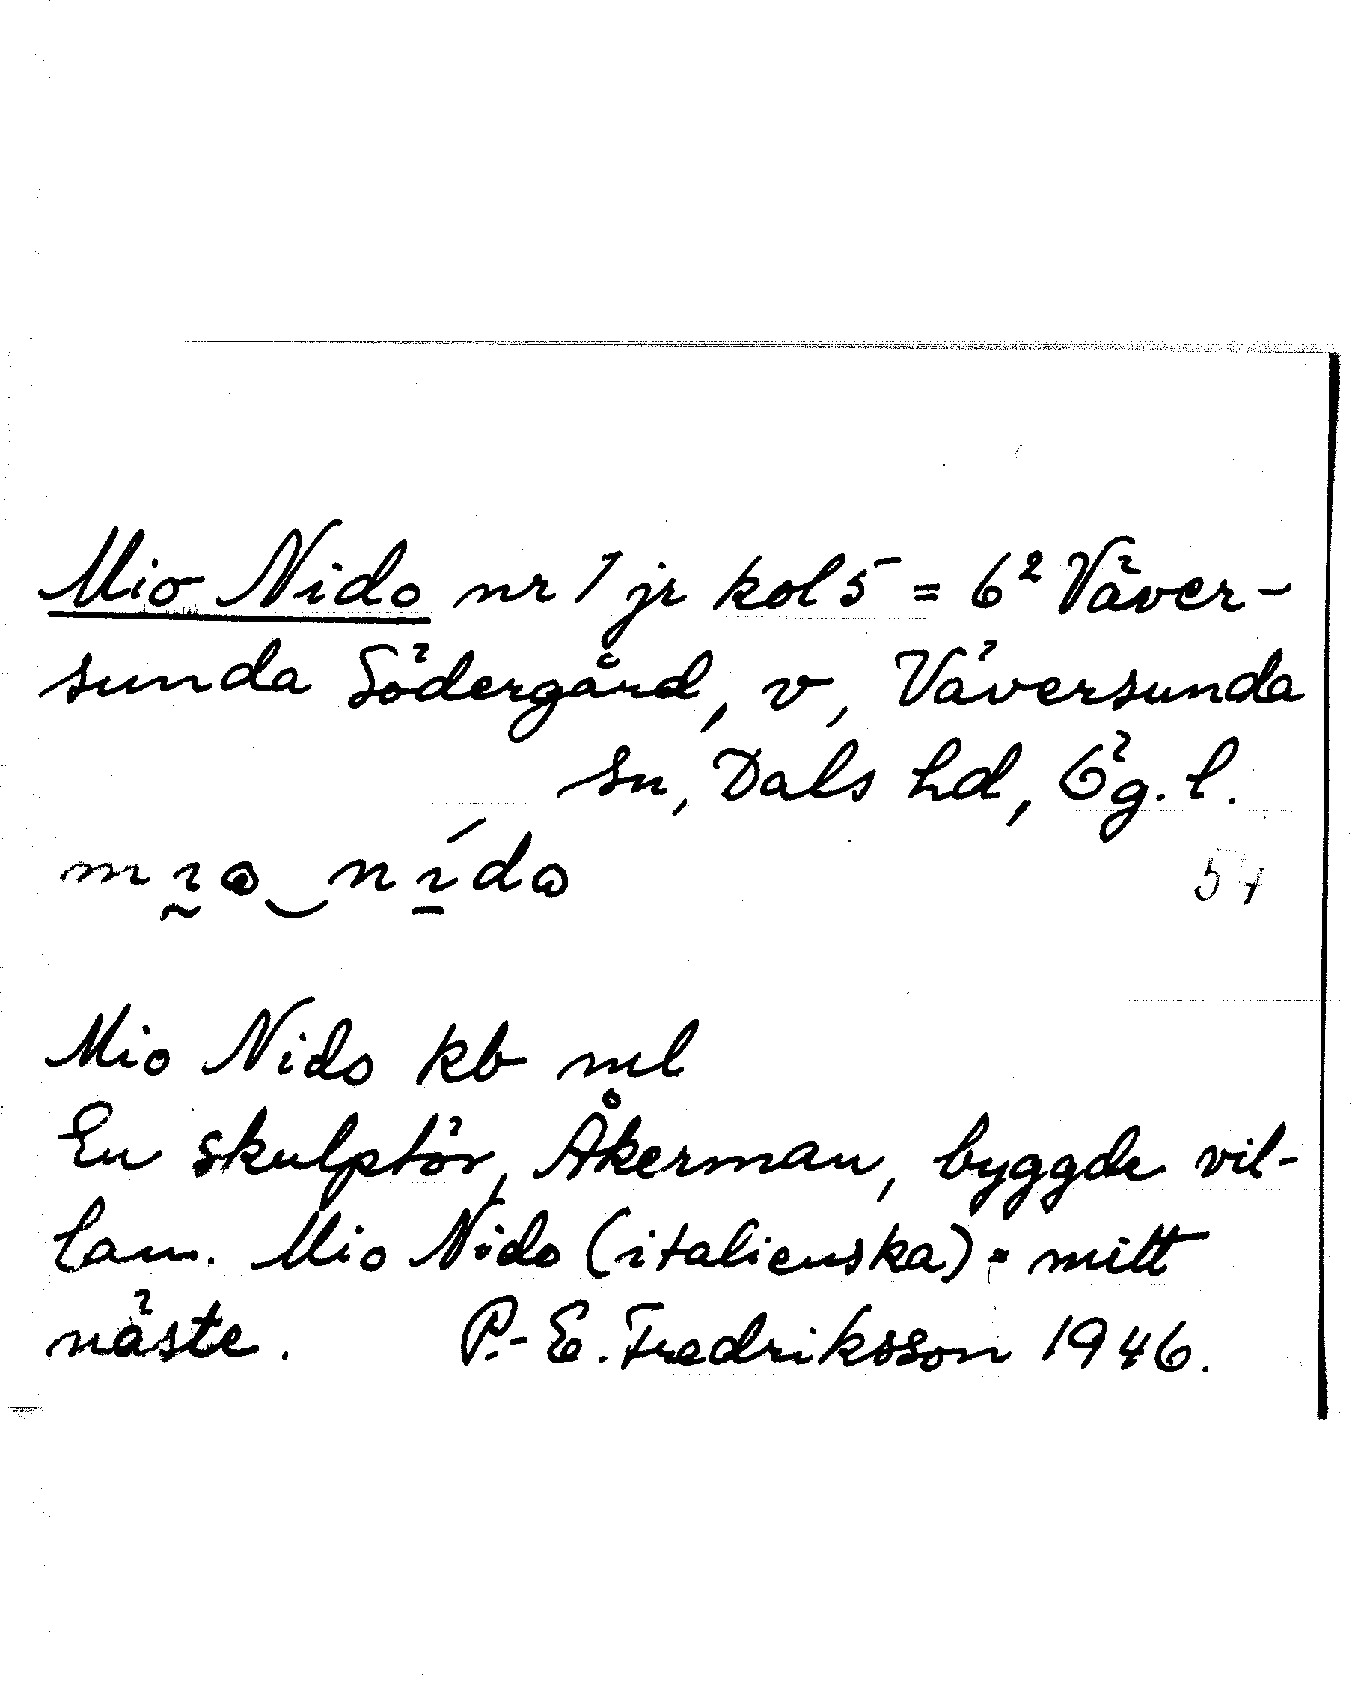 Mio Nido nr 1 jr kol 5 = 6² Väver-
sunda Södergård, v, Väversunda
sn, Dals hd, Ög. l.
mıo‿nído
57
Mio Nido kb ml
En skulptör, Åkerman, byggde vil-
lan. Mio Nido (italienska) = mitt
näste. P.-E. Fredriksson 1946.